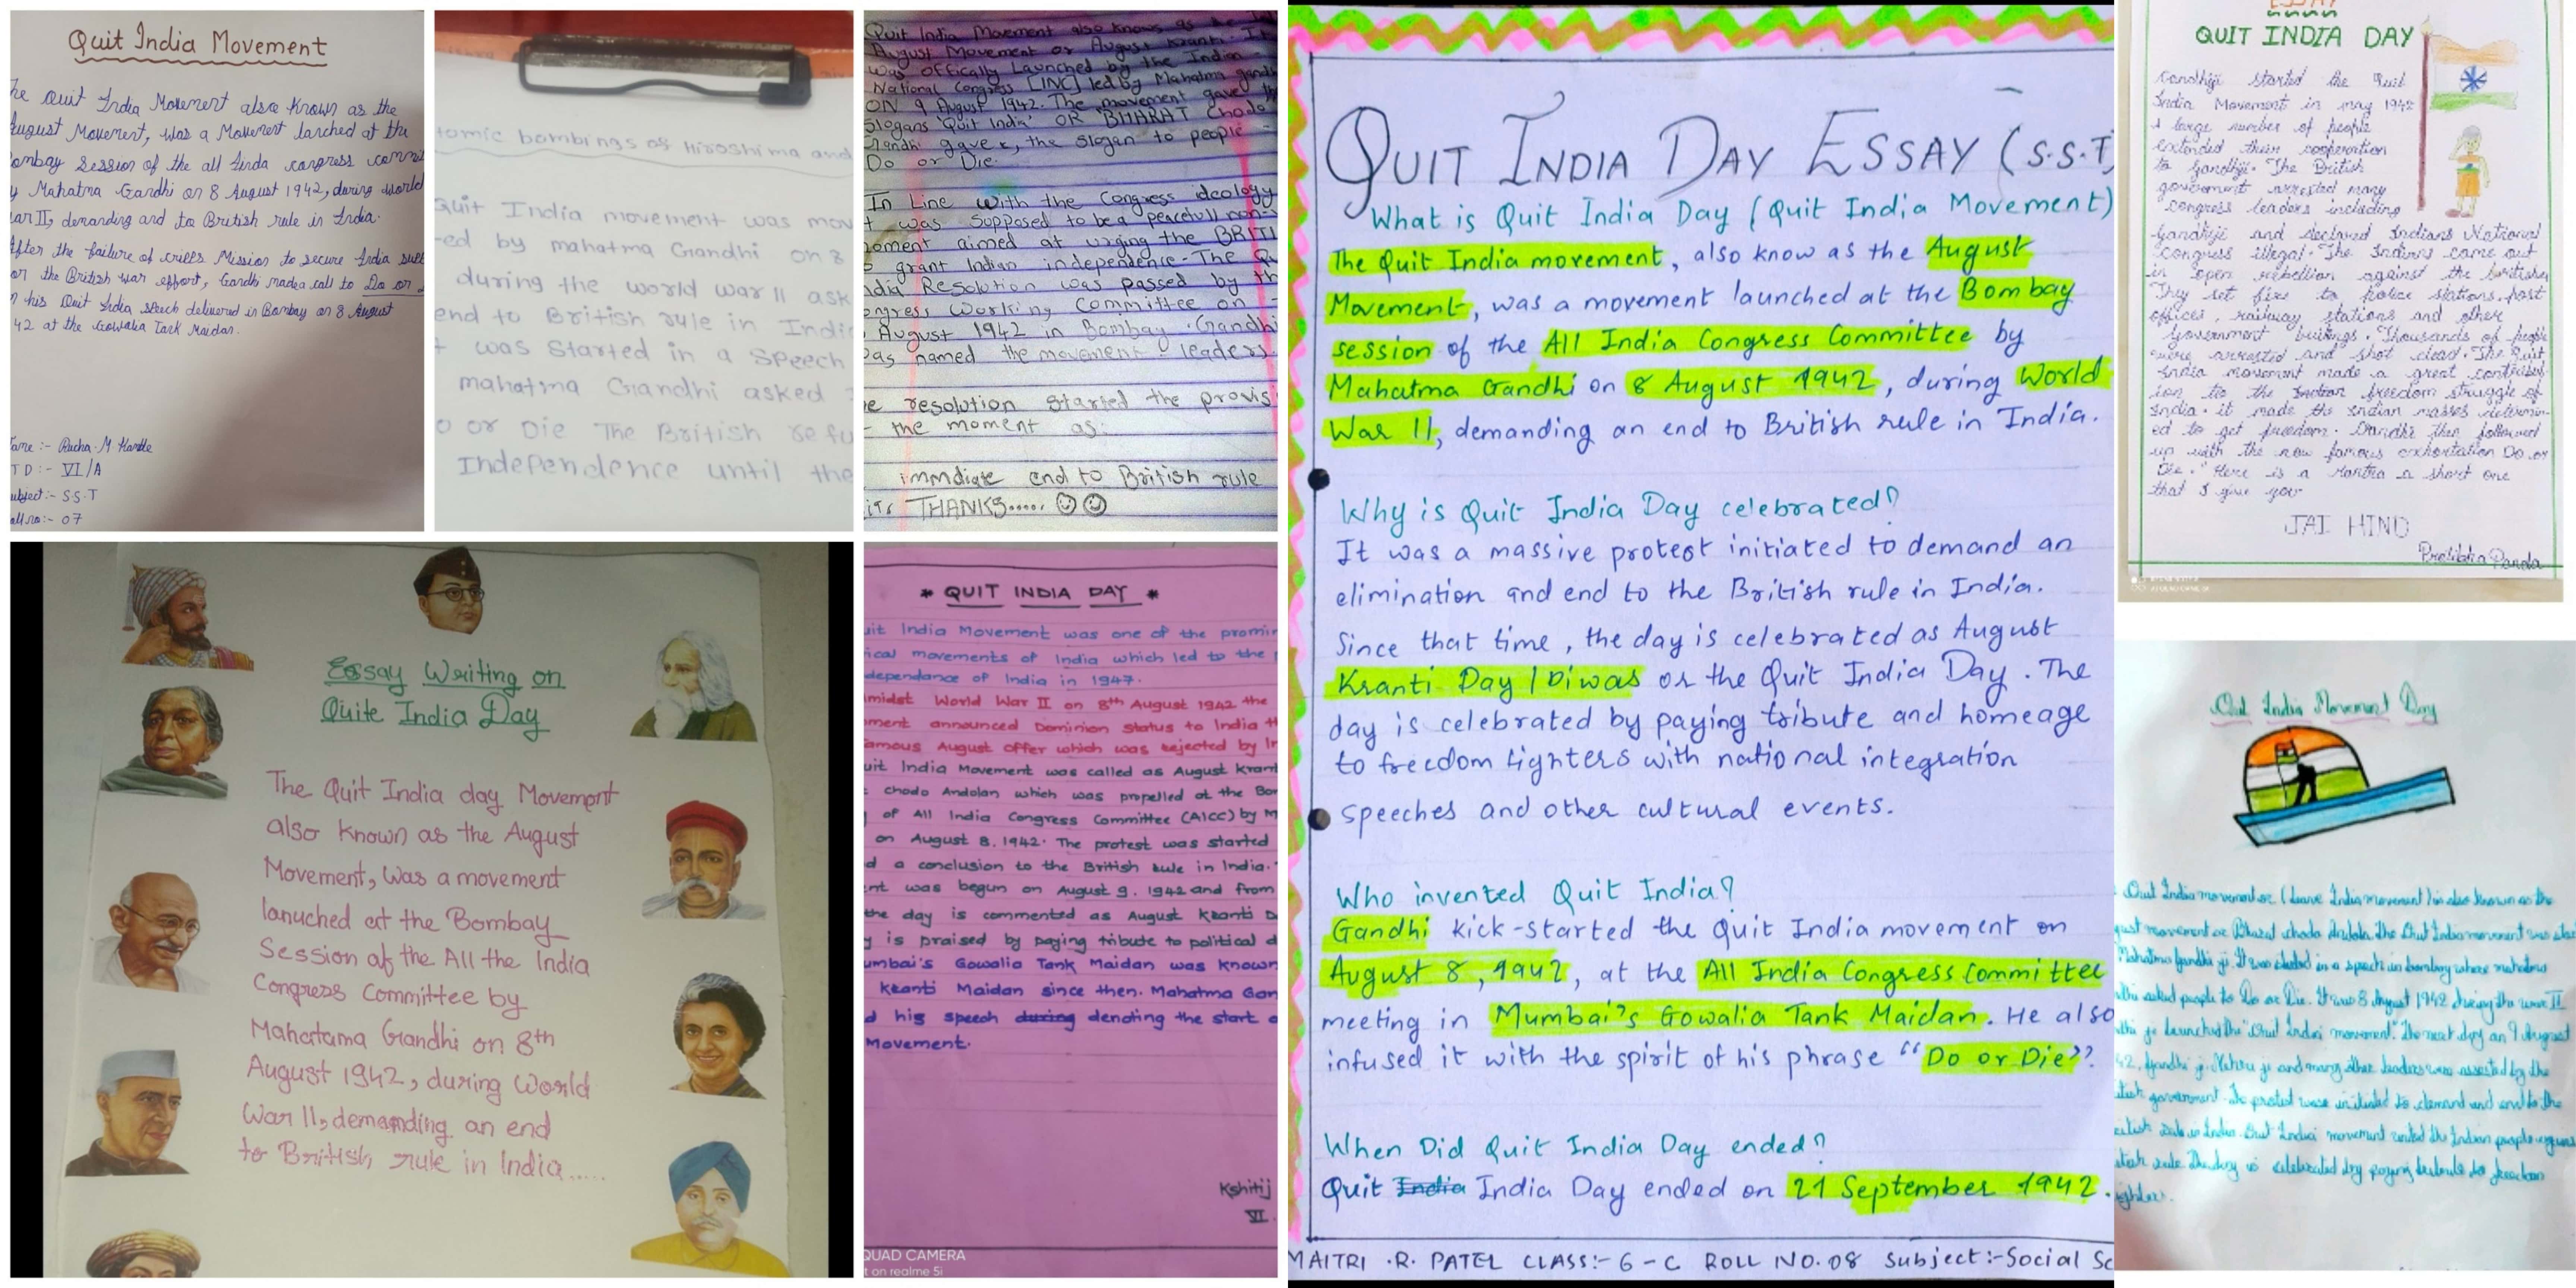 Quit India Movement
he Quit India Movement also known as the
August Movement, was a Movement lanched at the
ombay Session of the all Iinda congress commi
y Mahatma Gandhi on 8 August 1942, during world
ar II, demanding and to British rule in India.
After the failure of cripps Mission to secure India
or the British war effort, Gandhi madea call to Do or
n his Quit India speech delivered in Bombay on 8 August
42 at the Gowalia Tank Maidan.
ame :- Rucha . M
TD :- VI/A
ubject :- S.S.T
oll no :- 07
tomic bombings of Hiroshima and
Quit India movement was mov
ed by mahatma Gandhi on 8
during the world war II ask
end to British rule in India
was Started in a Speech
mahatma Gandhi asked
o or Die The British refu
Independence until the
Quit India Movement also knows as the
August Movement or August Kranti. It
was offically Launched by the Indian
National Congress [INC] led by Mahatma gandh
ON 9 August 1942. The movement gave th
Slogans 'Quit India' OR 'BHARAT Chodo
Gandhi gave, the slogan to people -
Do or Die.
In Line with the Congress ideology
t was Supposed to be a peacefull non-
oment aimed at urging the BRITI
grant Indian independence - The Qu
ndia Resolution was passed by th
ongress Working Committee on -
August 1942 in Bombay . Gandhi
as named the movement leaders.
e resolution started the provis
the moment as:
immdiate end to British rule
THANKS.....
Essay Writing on
Quite India Day
The Quit India day Movement
also known as the August
Movement, Was a movement
lanuched at the Bombay
Session of the All the India
Congress Committee by
Mahatama Gandhi on 8th
August 1942, during World
War II, demanding an end
to British rule in India.....
* QUIT INDIA DAY *
uit India Movement was one of the promin
ical movements of India which led to the
dependance of India in 1947.
midst World War II on 8th August 1942 the
ment announced Dominion status to India th
amous August offer which was rejected by In
uit India Movement was called as August Krant
chodo Andolan which was propelled at the Bom
of All India Congress Committee (AICC) by M
on August 8, 1942. The protest was started
d a conclusion to the British rule in India.
nt was begun on August 9, 1942 and from
the day is commented as August Kranti D
y is praised by paying tribute to political d
umbai's Gowalia Tank Maidan was known
Kranti Maidan since then. Mahatma Gan
d his speech during denoting the start o
Movement.
Kshitij
VI
QUAD CAMERA
t on realme 5i
QUIT INDIA DAY ESSAY (S.S.T
What is Quit India Day (Quit India Movement)
The Quit India movement, also know as the August
Movement, was a movement launched at the Bombay
session of the All India Congress Committee by
Mahatma Gandhi on 8 August 1942, during World
War II, demanding an end to British rule in India.
Why is Quit India Day celebrated?
It was a massive protest initiated to demand an
elimination and end to the British rule in India.
Since that time, the day is celebrated as August
Kranti Day / Diwas or the Quit India Day. The
day is celebrated by paying tribute and homeage
to freedom fighters with national integration
speeches and other cultural events.
Who invented Quit India?
Gandhi kick-started the Quit India movement on
August 8, 1942, at the All India Congress Committee
meeting in Mumbai's Gowalia Tank Maidan. He also
infused it with the spirit of his phrase "Do or Die".
When Did Quit India Day ended?
Quit India India Day ended on 21 September 1942.
MAITRI .R. PATEL CLASS:- 6 - C ROLL NO. 08 Subject:-Social Sc
ESSAY
QUIT INDIA DAY
Gandhiji started the Quit
India Movement in may 1942
A large number of people
extended their cooperation
to Gandhiji. The British
government arrested many
congress leaders including
Gandhiji and declared Indians National
congress illegal. The Indians came out
in open rebellion against the britisher
They set fire to police stations, post
offices, railway stations and other
Government buitings. Thousands of people
were arrested and shot dead. The Quit
India movement made a great contribut
ion to the freedom struggle of
India. it made the Indian masses determin-
ed to get freedom. Gandhi then followed
up with the now famous exhortation Do or
Die." Here is a Mantra a short one
that I give you
JAI HIND
Pratibha Panda
Quit India Movement Day
Quit India movement or (leave India movement) is also known as the
gust movement or Bharat chodo Andolan. The Quit India movement was
Mahatma Gandhi ji. It was started in a speech in bombay where mahatma
dhi asked people to Do or Die. It was 8 August 1942 during the war II
dhi ji launched the "Quit India movement". The next day on 9 August
42, Gandhi ji, Nehru ji and many other leaders were arrested by the
itish government. The protest was initiated to demand and end to the
ritish rule in India. Quit India movement united the Indian people
itish rule. The day is celebrated by paying tribute to freedom
ighters.